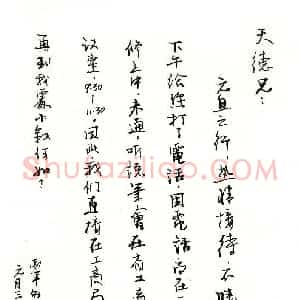 天德兄：
元旦之行，热情接待，不胜
下午给您打了电话，因电话尚在
修之中，未通，听说笔会在省工商
议室，9:30—11:30，因此我们直接在工商局
再到我处小叙，如何？
元月二
shufaziliao.com